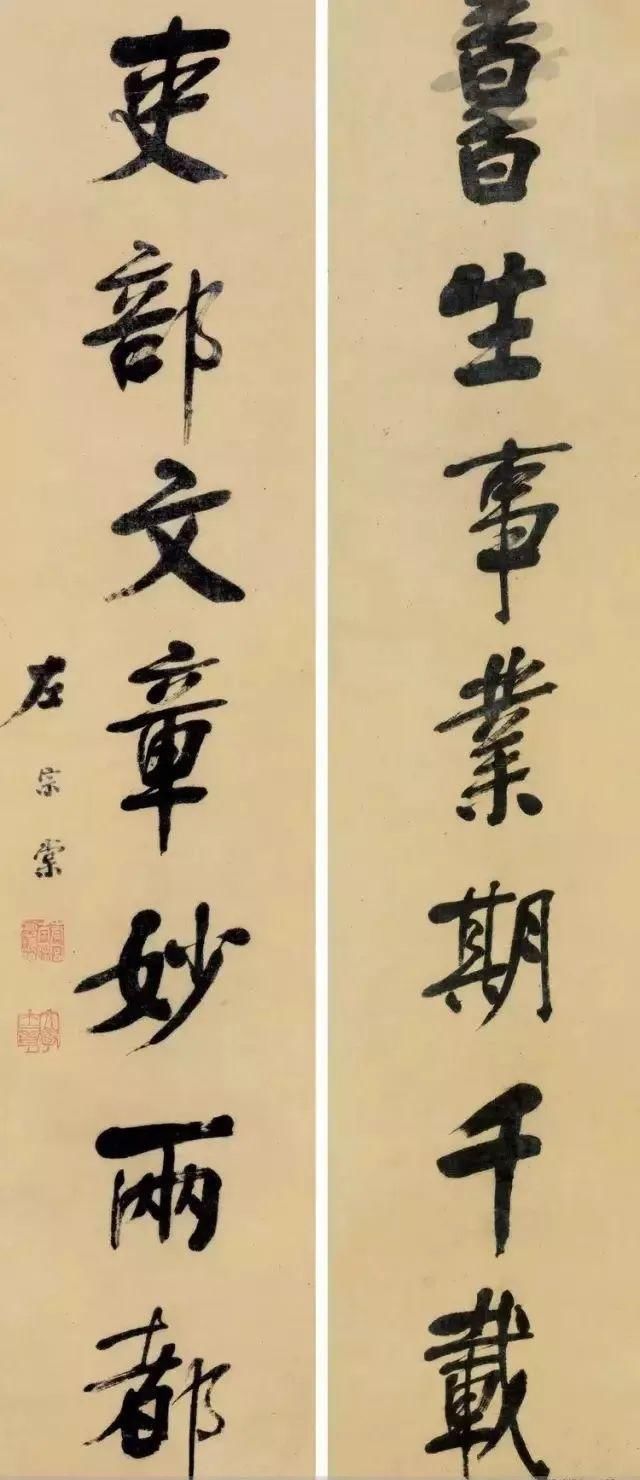 書生事業期千載
吏部文章妙兩都
左宗棠